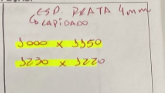 ESP. PRATA 4mm
LAPIDADO
3000 x 3350
3230 x 3220